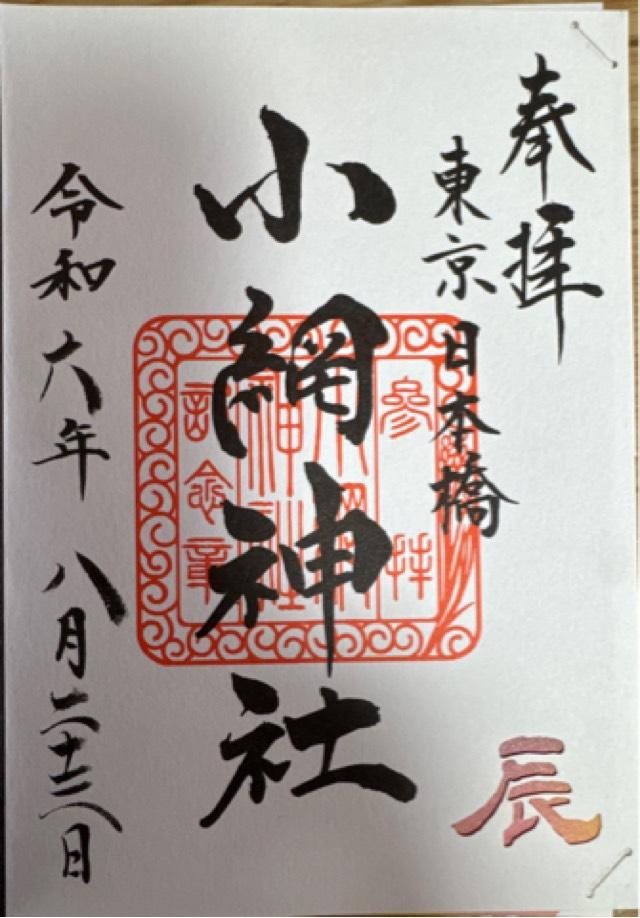 奉拝
東京日本橋
小網神社
參拝
小網
神社
記念章
令和六年 八月二十三日
辰